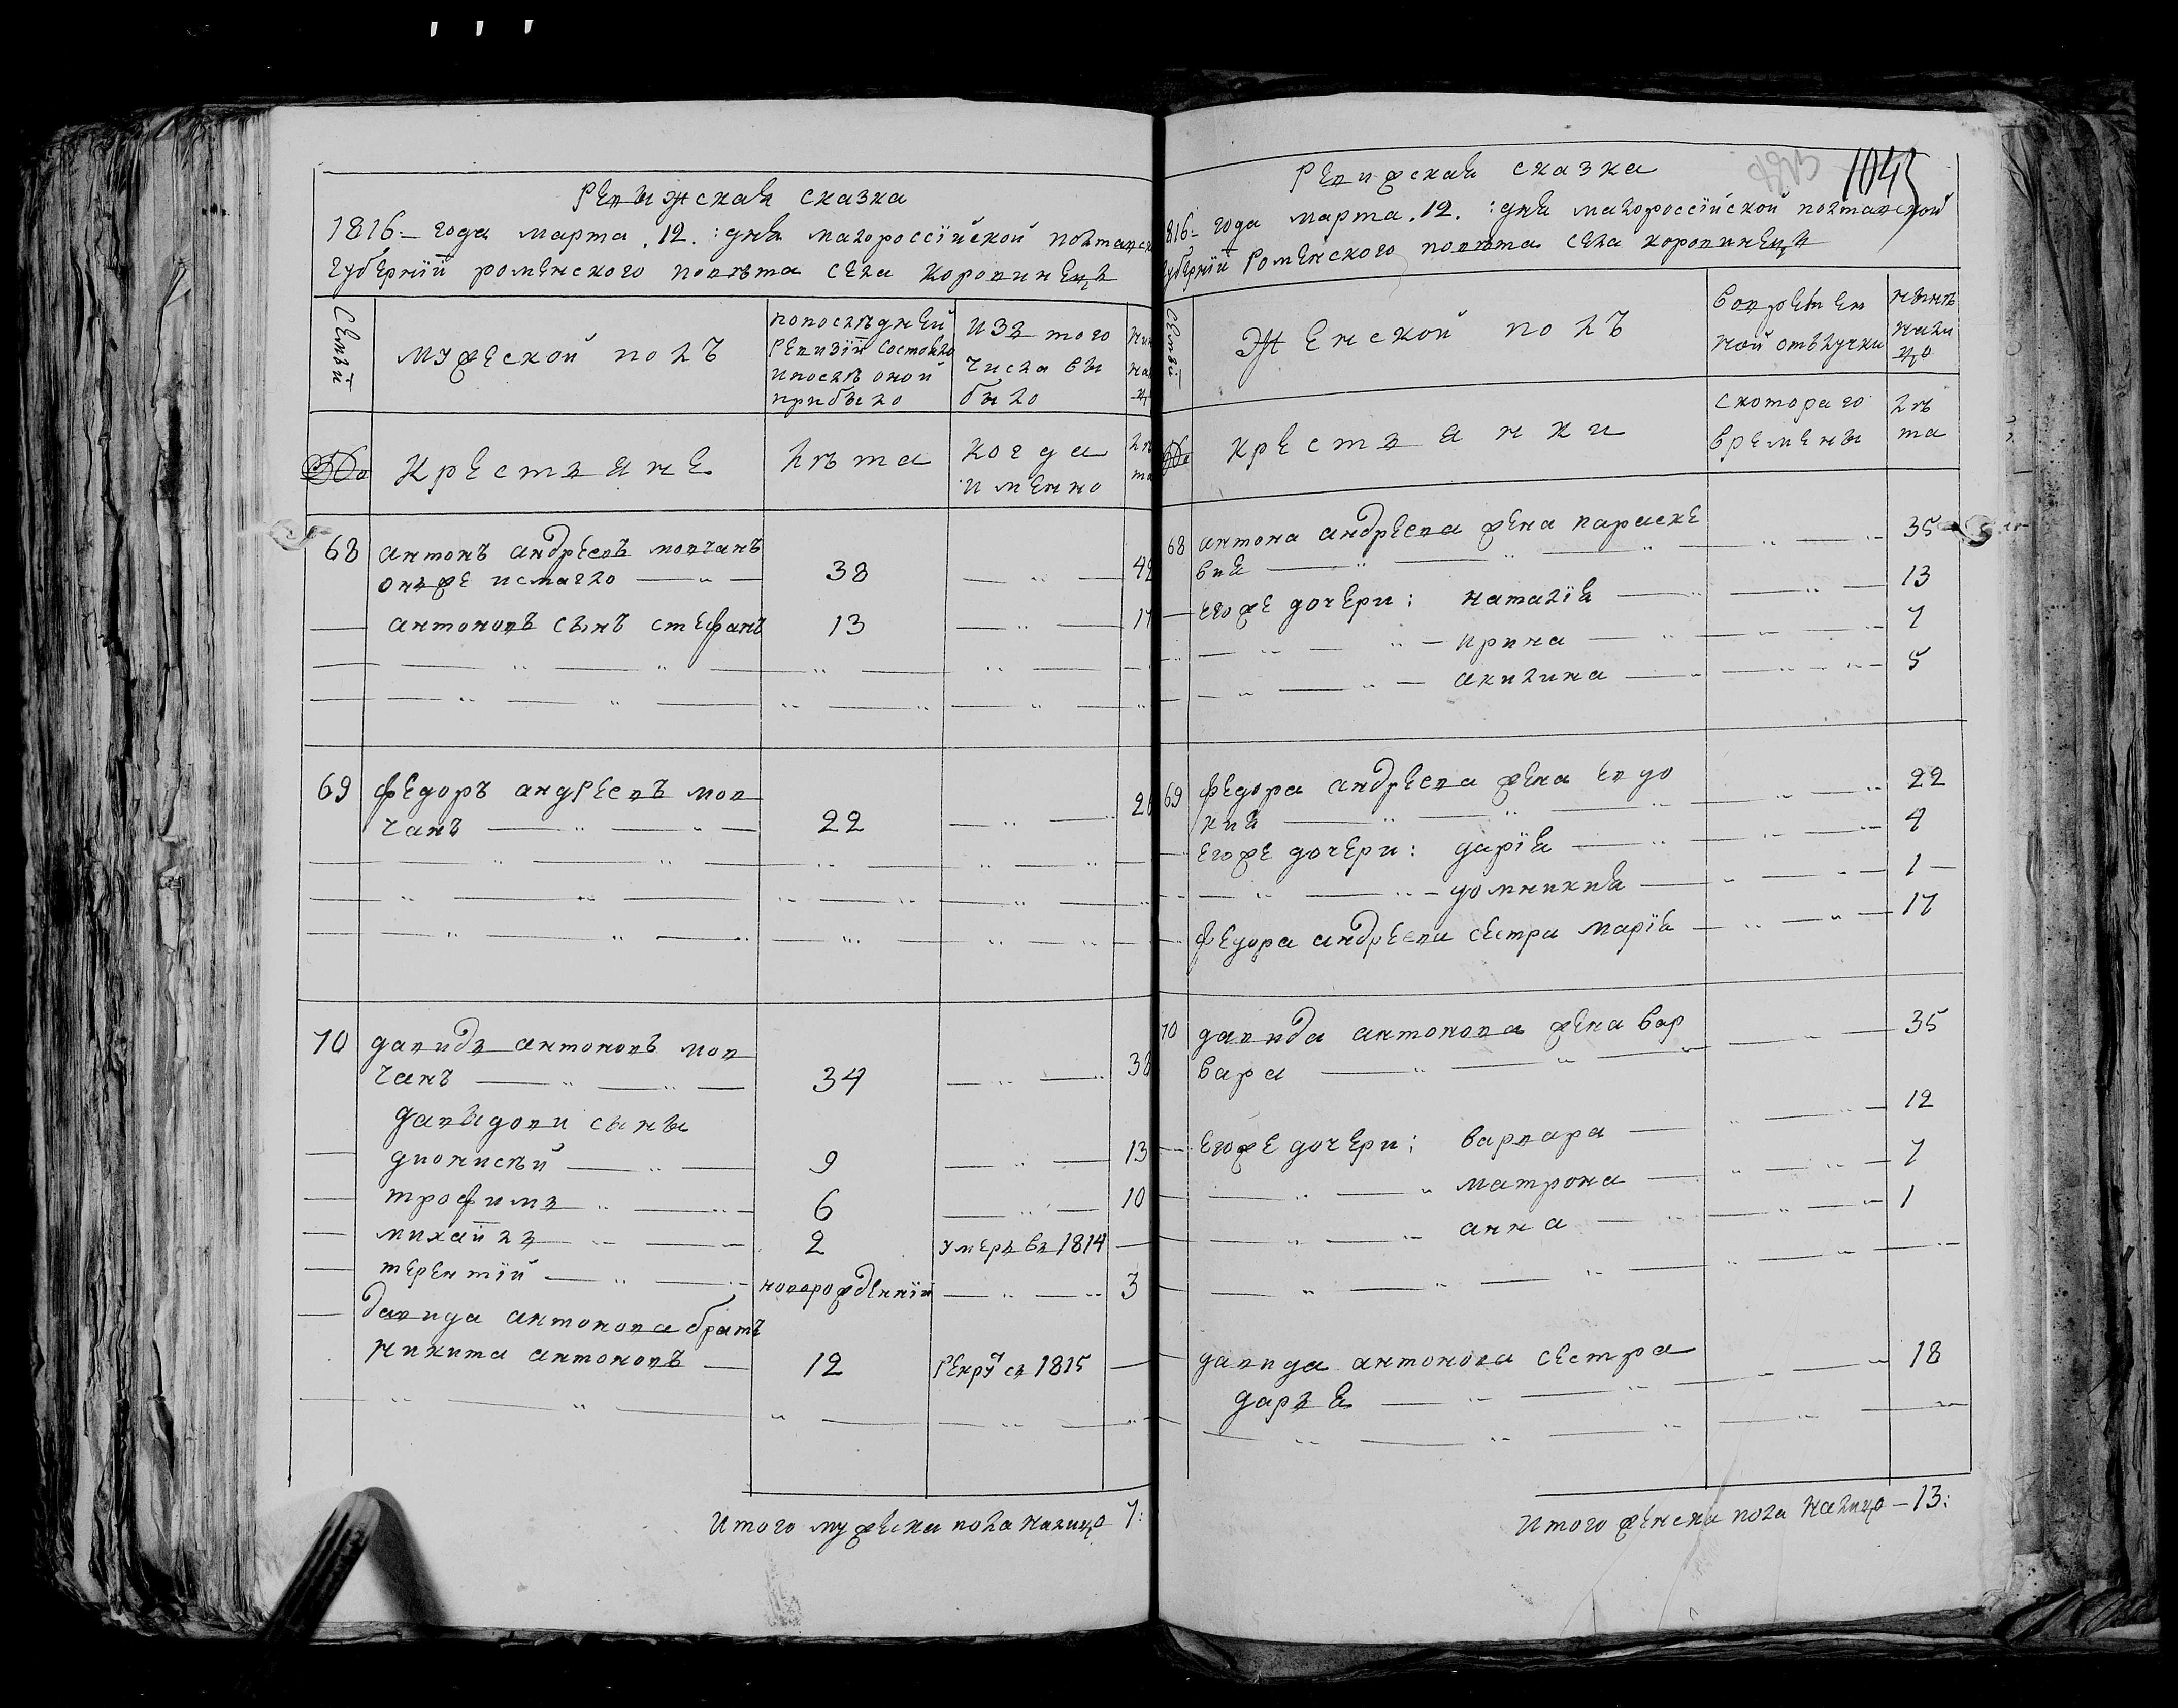 Ревизская сказка
1816:– года марта .12. : дня малороссїйской полтавск
губернїй роменского повѣта села коровинецъ
Семьй
мужеской полъ
попослѣдней
ревизїй состояло
ипослѣ оной
прибыло
изъ того
числа вы
было
нын
нал
ц
№
Крестьяне
лѣта
когда
именно
лѣ
та
68 антонъ андреевъ мовчанъ
онъже исмагло 38 42
антоновъ сынъ стефанъ 13 17
69 федоръ андреевъ мов
чанъ 22 26
70 давидъ антоновъ мов
чанъ 34 38
давыдови сыны
дионисѣй 9 13
трофимъ 6 10
михайлъ 2 умеръ въ 1814
терентїй новорожденнїй 3
давида антонова братъ
никита антоновъ 12 рекру св 1815
Итого мужеска пола налицо 7:
Ревижская сказка
1045
816:– года марта .12. : дня малороссїйской полтавской
губернїй Роменского повѣта села коровинецъ
Семьй
Женской полъ
Вовремен
ной отълучки
нынѣ
нали
цо
№
крестьянки
скотораго
времены
лѣ
та
68 антона андреева жена параске
вия 35
егоже дочери: наталїя 13
ирина 7
акилина 5
69 федора андреева жена евдо
кия 22
егоже дочери: дарїя 4
домникия 1
федора андреева сестра марїя 17
70 давида антонова жена вар
вара 35
егоже дочери: варвара 12
матрона 7
анна 1
давида антонова сестра 18
дарья
Итого женска пола налицо – 13: